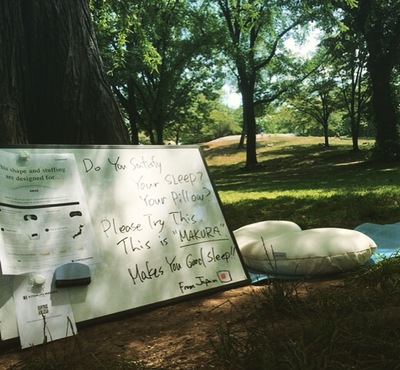 shape and stuffing
are designed for...
Do You Satisfy
Your SLEEP?
Your Pillow?
Please Try This.
This is "MAKURA"
Makes You Good Sleep!!
From Japan